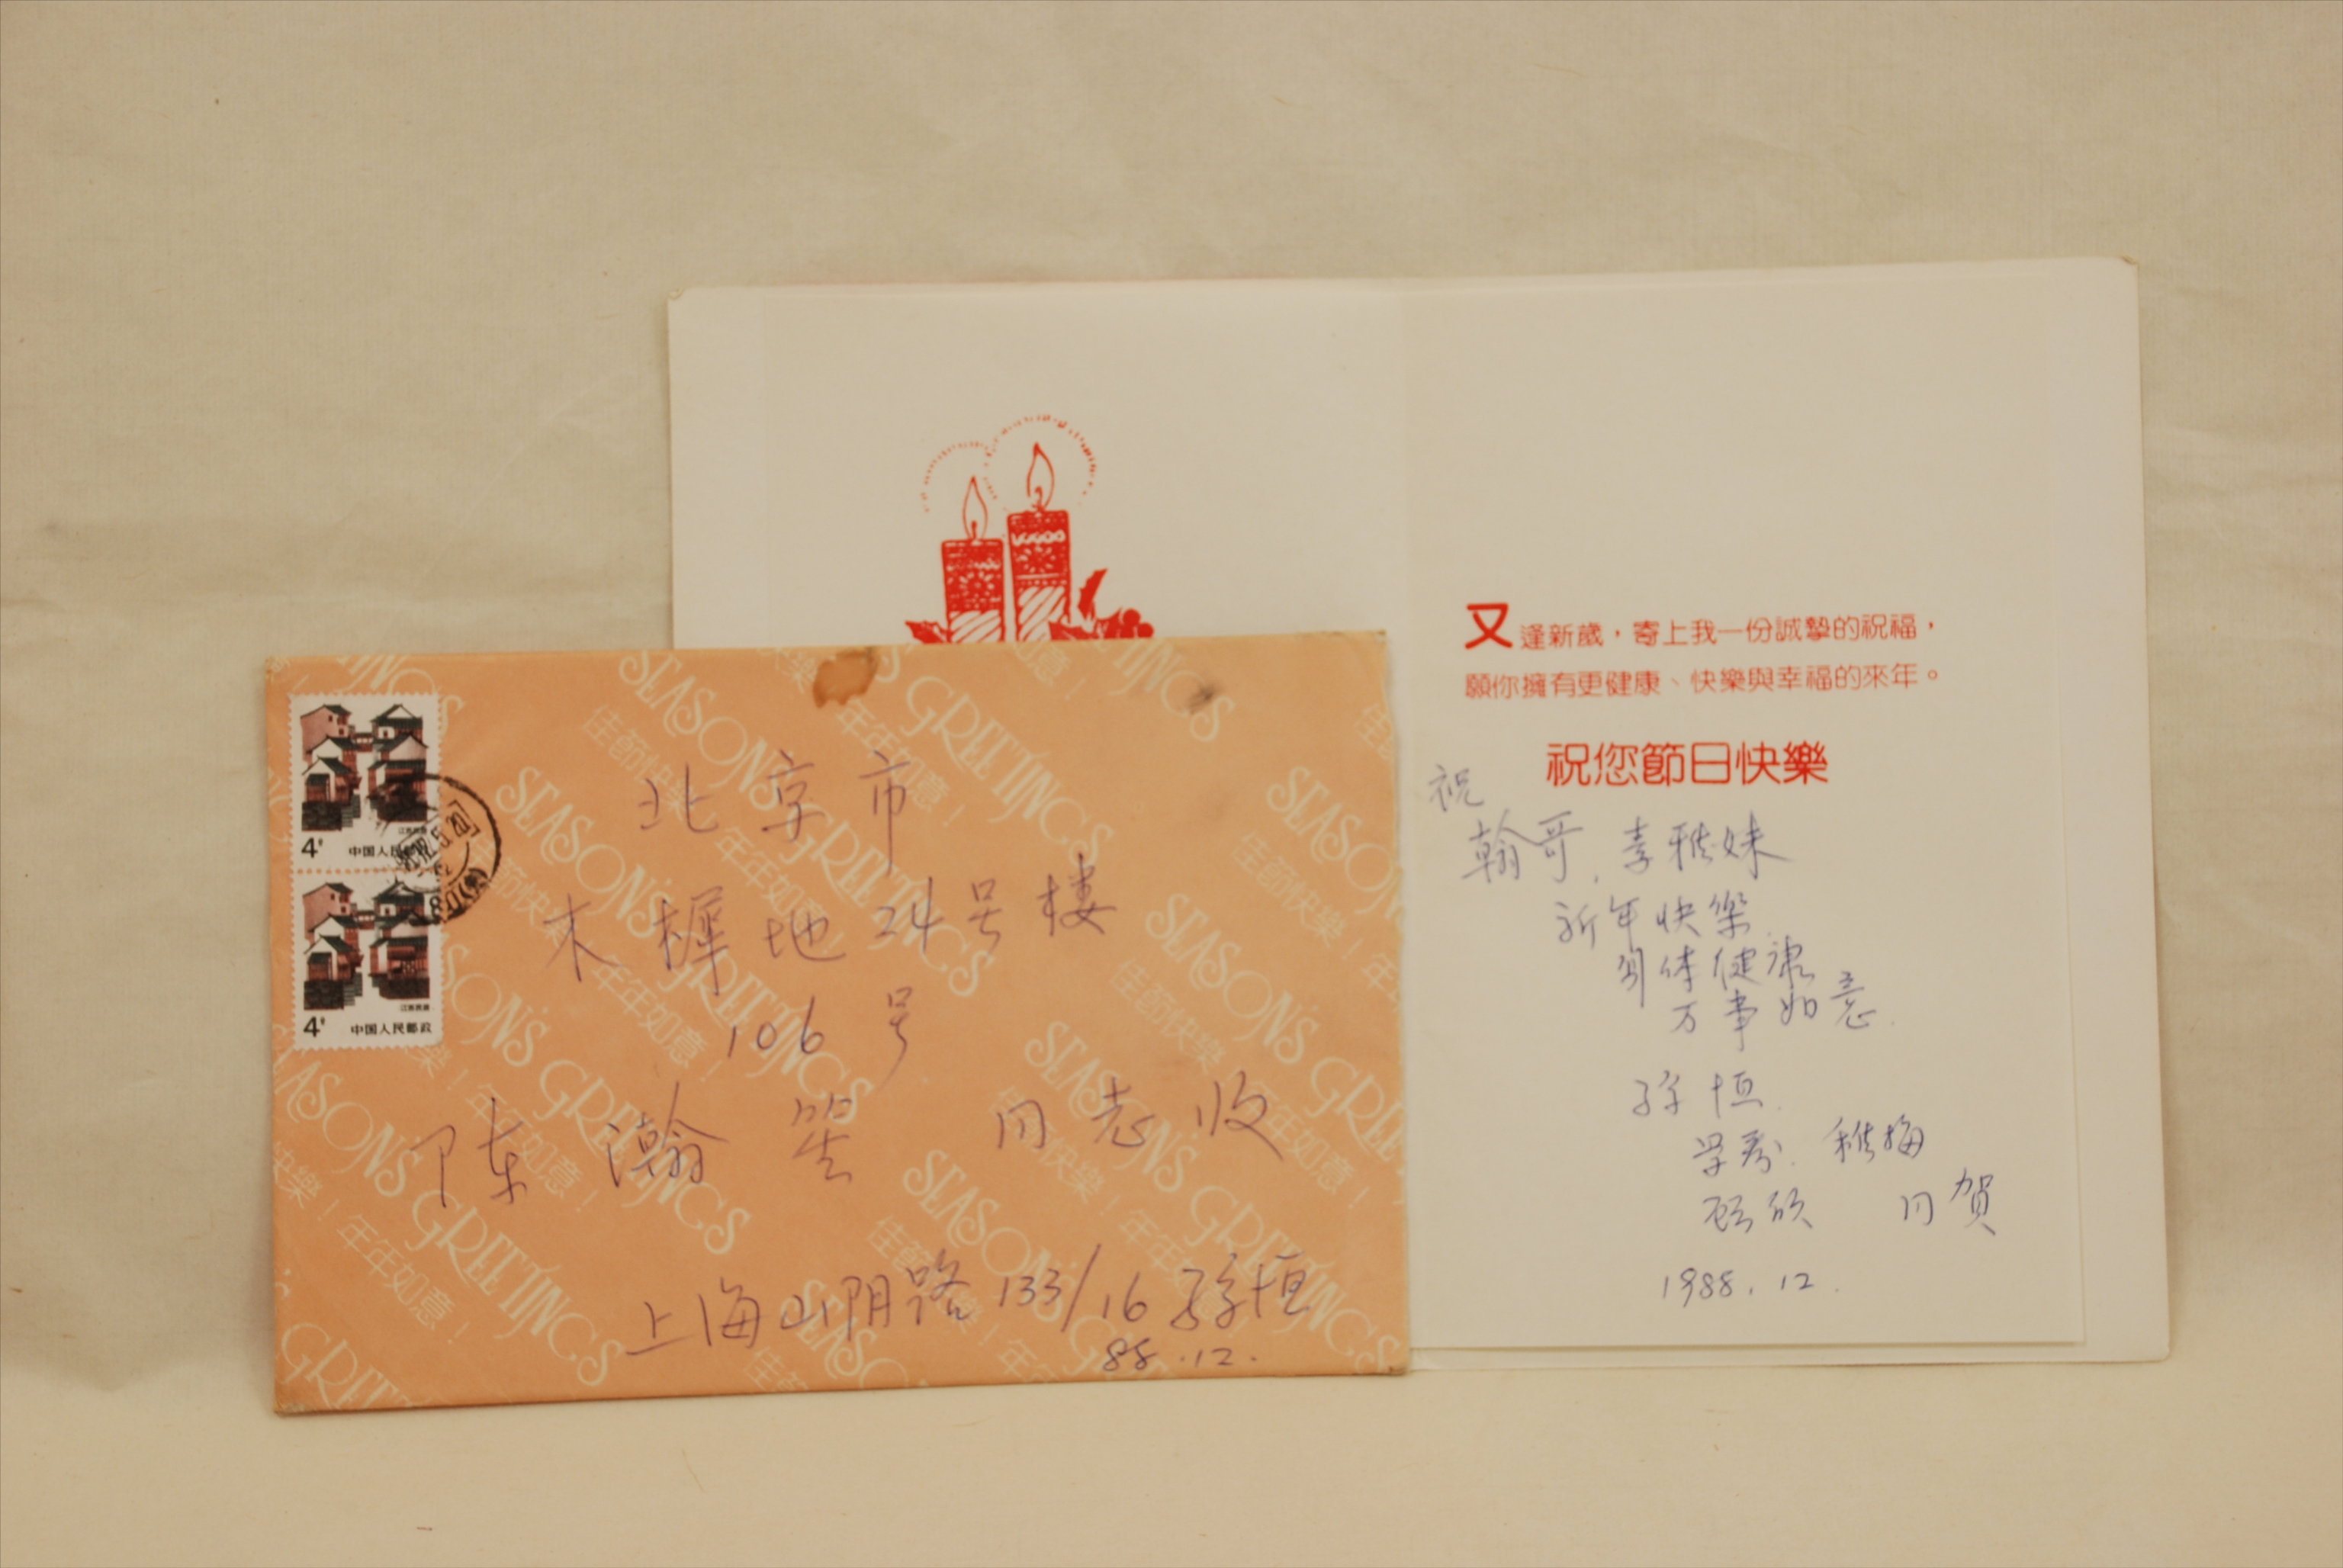 4分 中国人民邮政
江苏民居
4分 中国人民邮政
北京市
木樨地24号楼
106号
陈瀚笙 同志收
上海山阴路133/16 孙恒
88.12.
SEASON'S GREETINGS
佳節快樂！年年如意！
又逢新歲，寄上我一份誠摯的祝福，
願你擁有更健康、快樂與幸福的來年。
祝您節日快樂
祝
翰哥、素雅妹
新年快樂
身体健康
万事如意.
孙恒.
稚梅
同贺
1988.12.